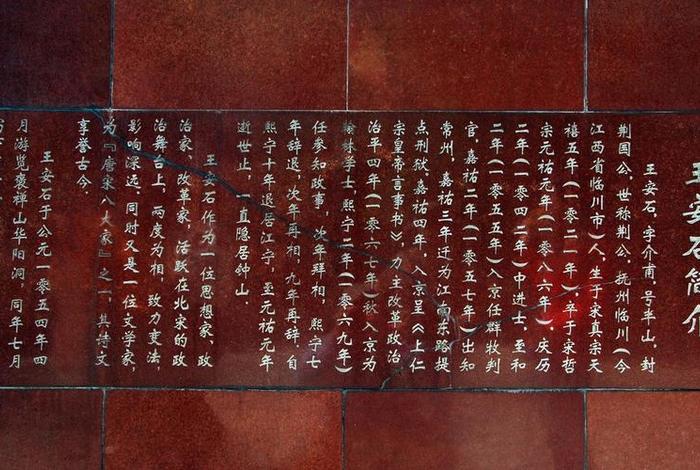 王安石简介
王安石，字介甫，号半山，封
荆国公，世称荆公，抚州临川（今
江西省临川市）人，生于宋真宗天
禧五年（一〇二一年），卒于宋哲
宗元祐元年（一〇八六年），庆历
二年（一〇四二年）中进士，至和
二年（一〇五五年）入京任群牧判
官，嘉祐二年（一〇五七年）出知
常州，嘉祐三年迁为江南东路提
点刑狱，嘉祐四年，入京呈《上仁
宗皇帝言事书》，力主改革政治
治平四年（一〇六七年）秋入京为
翰林学士，熙宁二年（一〇六九年）
任参知政事，次年拜相，熙宁七
年辞退，次年再相，九年再辞，自
熙宁十年退居江宁，至元祐元年
逝世止，一直隐居钟山
王安石作为一位思想家、政
治家、改革家，活跃在北宋的政
治舞台上，两度为相，致力变法，
影响深远，同时又是一位文学家，
为『唐宋八大家』之一，其诗文
享誉古今，
王安石于公元一〇五四年四
月游览褒禅山华阳洞，同年七月